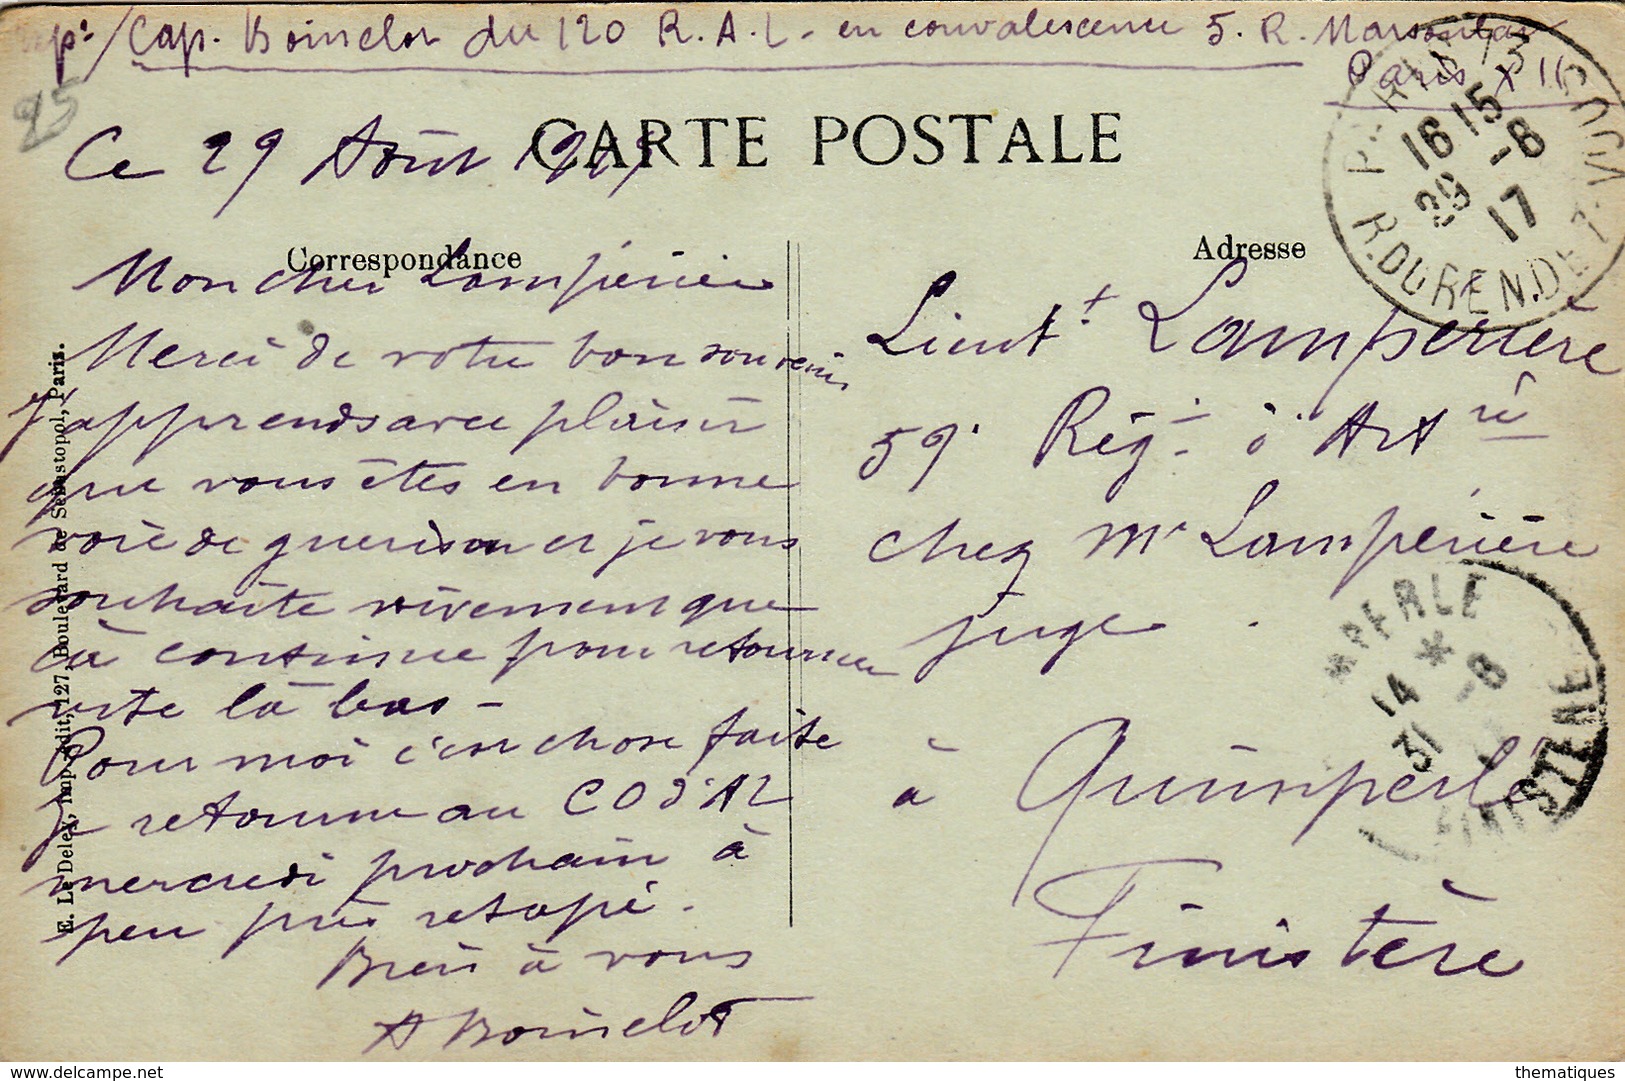 Exp. / Cap. Boinselot du 120 R.A.L. en convalescence 5. R. Marsoulan
Paris XII
25
CARTE POSTALE
Ce 29 Août 1917
Correspondance
Mon cher Lamperière
Merci de votre bon souvenir
J'apprends avec plaisir
que vous êtes en bonne
voie de guerison et je vous
souhaite vivement que
ça continue pour retourner
vite là bas -
Pour moi c'est chose faite
Je retourne au COAL
mercredi prochain à
peu près retapé.
Bien à vous
A Boinselot
E. Le Deley, Imp.-Edit., 127, Boulevard de Sébastopol, Paris.
Adresse
Lieut.t Lamperière
59e Régt d'Artrie
chez Mr Lamperière
juge.
à Quimperlé
Finistère
PARIS
16 15
29 -8
17
R. DU RENDEZ-VOUS
*PERLE *
14
31 -8
FINISTERE
www.delcampe.net
thematiques